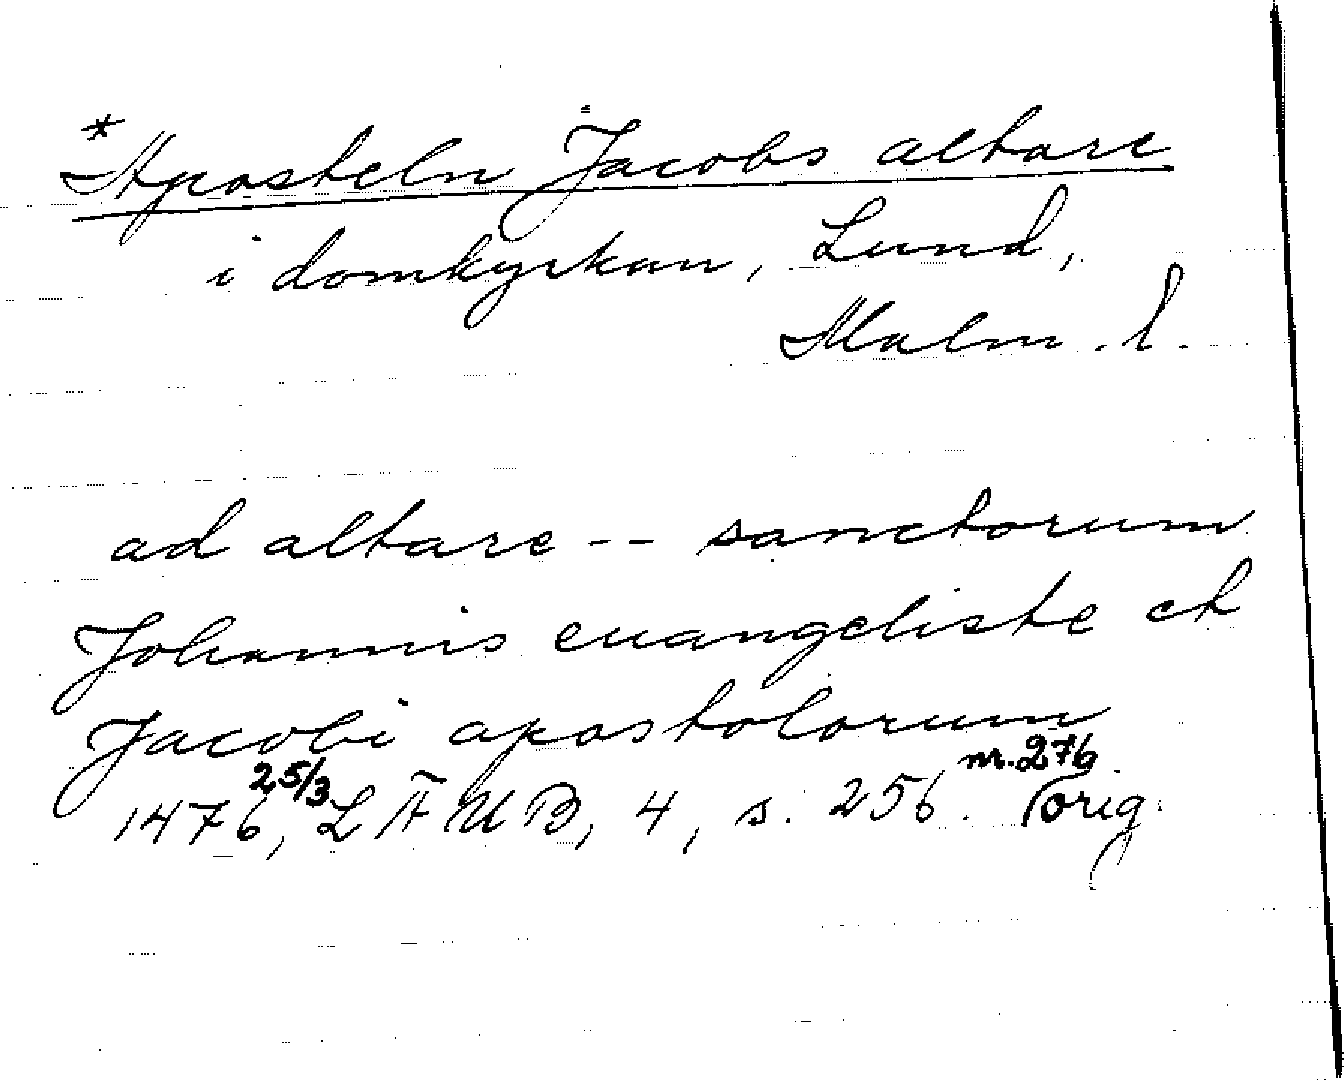 *Aposteln Jacobs altare
i domkyrkan, Lund,
Malm. l.
ad altare -- sanctorum
Johannis euangeliste et
Jacobi apostolorum
25/3 nr. 276
1476, LÄUB, 4, s. 256. (orig.